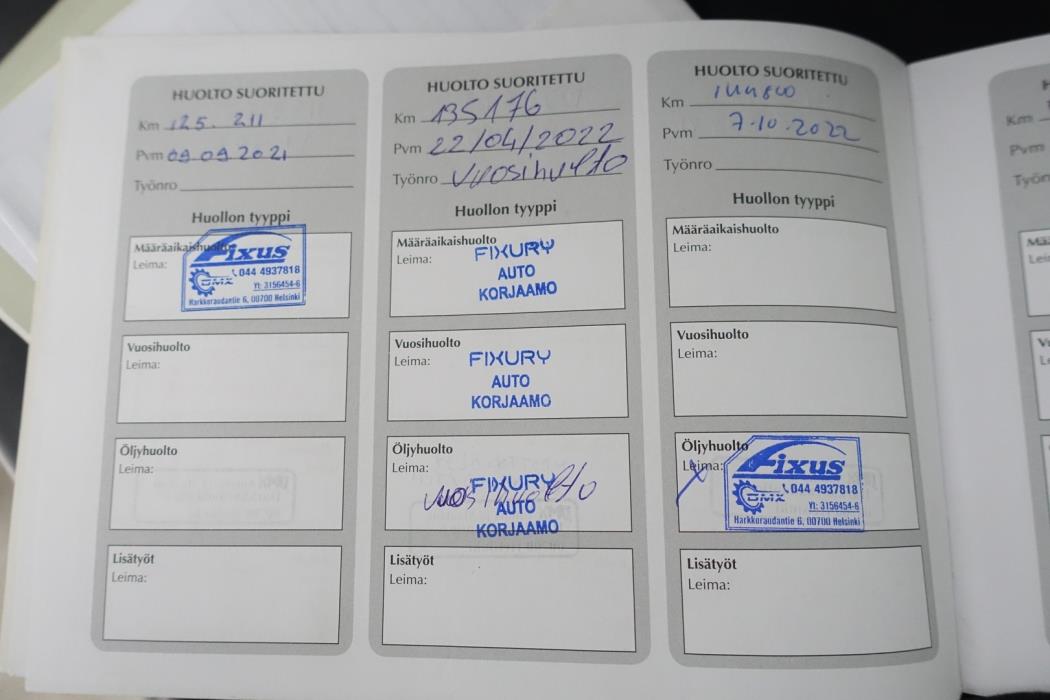 HUOLTO SUORITETTU
Km 125. 211
Pvm 09.09.2021
Työnro
Huollon tyyppi
Määräaikaishuolto
Leima:
Fixus
044 4937818
BMX
Yt: 3156454-6
Harkkoraudantie 6, 00700 Helsinki
Vuosihuolto
Leima:
Öljyhuolto
Leima:
Lisätyöt
Leima:
HUOLTO SUORITETTU
Km 135176
Pvm 22/04/2022
Työnro Vuosihuolto
Huollon tyyppi
Määräaikaishuolto
Leima:
FIXURY
AUTO
KORJAAMO
Vuosihuolto
Leima:
FIXURY
AUTO
KORJAAMO
Öljyhuolto
Leima:
FIXURY
vuosihuolto
AUTO
KORJAAMO
Lisätyöt
Leima:
HUOLTO SUORITETTU
Km
Pvm 7.10.2022
Työnro
Huollon tyyppi
Määräaikaishuolto
Leima:
Vuosihuolto
Leima:
Öljyhuolto
Leima:
Fixus
044 4937818
BMX
Yt: 3156454-6
Harkkoraudantie 6, 00700 Helsinki
Lisätyöt
Leima:
Km
Pvm